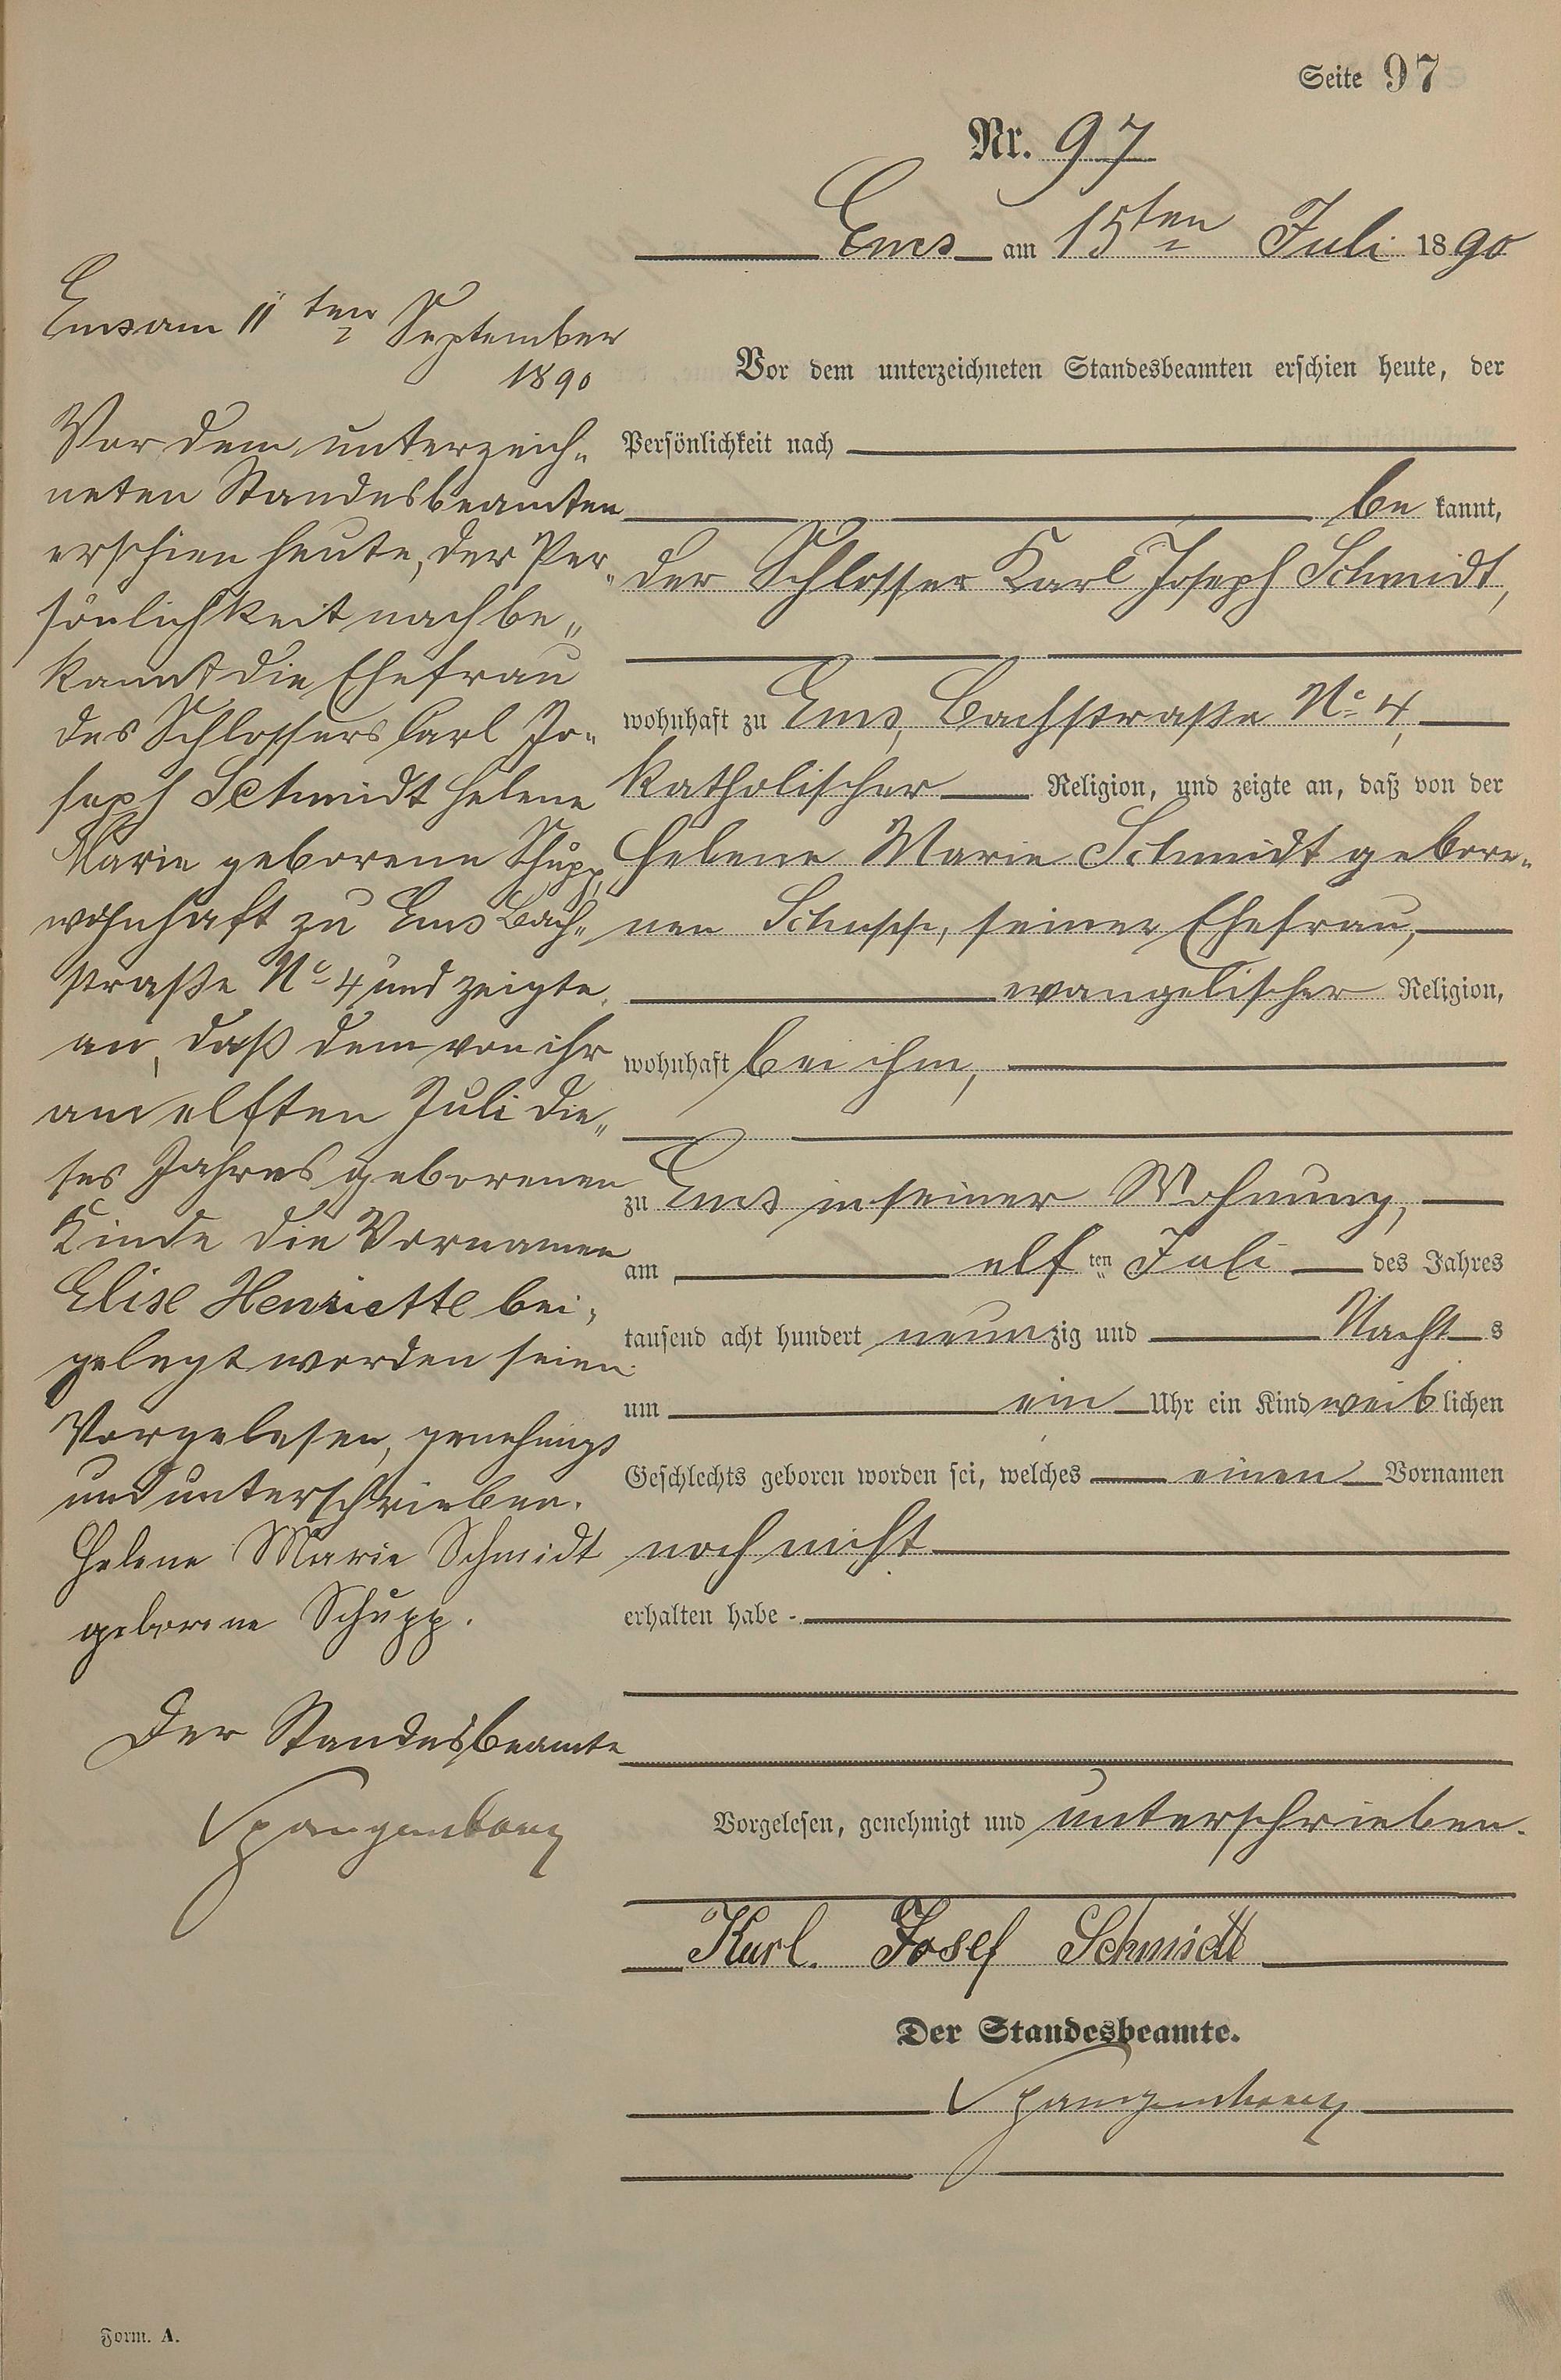 Seite 97
Nr. 97
Ems am 15ten Juli 1890
Vor dem unterzeichneten Standesbeamten erschien heute, der
Persönlichkeit nach
be kannt,
der Schlosser Karl Joseph Schmidt,
wohnhaft zu Ems, Bachstraße No 4,
katholischer Religion, und zeigte an, daß von der
Helene Marie Schmidt gebore-
nen Schupp, seiner Ehefrau,
evangelischer Religion,
wohnhaft bei ihm,
zu Ems in seiner Wohnung,
am elf ten Juli des Jahres
tausend acht hundert neunzig und Nacht s
um ein Uhr ein Kind weiblichen
Geschlechts geboren worden sei, welches einen Vornamen
noch nicht
erhalten habe -
Vorgelesen, genehmigt und unterschrieben.
Karl. Josef Schmidt
Der Standesbeamte.
Spangenberg
Ems am 11ten September
1890
Vor dem unterzeich-
neten Standesbeamten
erschien heute, der Per-
sönlichkeit nach be-
kannt die Ehefrau
des Schlossers Carl Jo-
seph Schmidt Helene
Marie geborene Schupp,
wohnhaft zu Ems Bach-
straße No 4 und zeigte
an, daß dem von ihr
am elften Juli die-
ses Jahres geborenen
Kinde die Vornamen
Elise Henriette bei-
gelegt worden seien.
Vorgelesen, genehmigt
und unterschrieben.
Helene Marie Schmidt
geborene Schupp.
Der Standesbeamte
Spangenberg
Form. A.